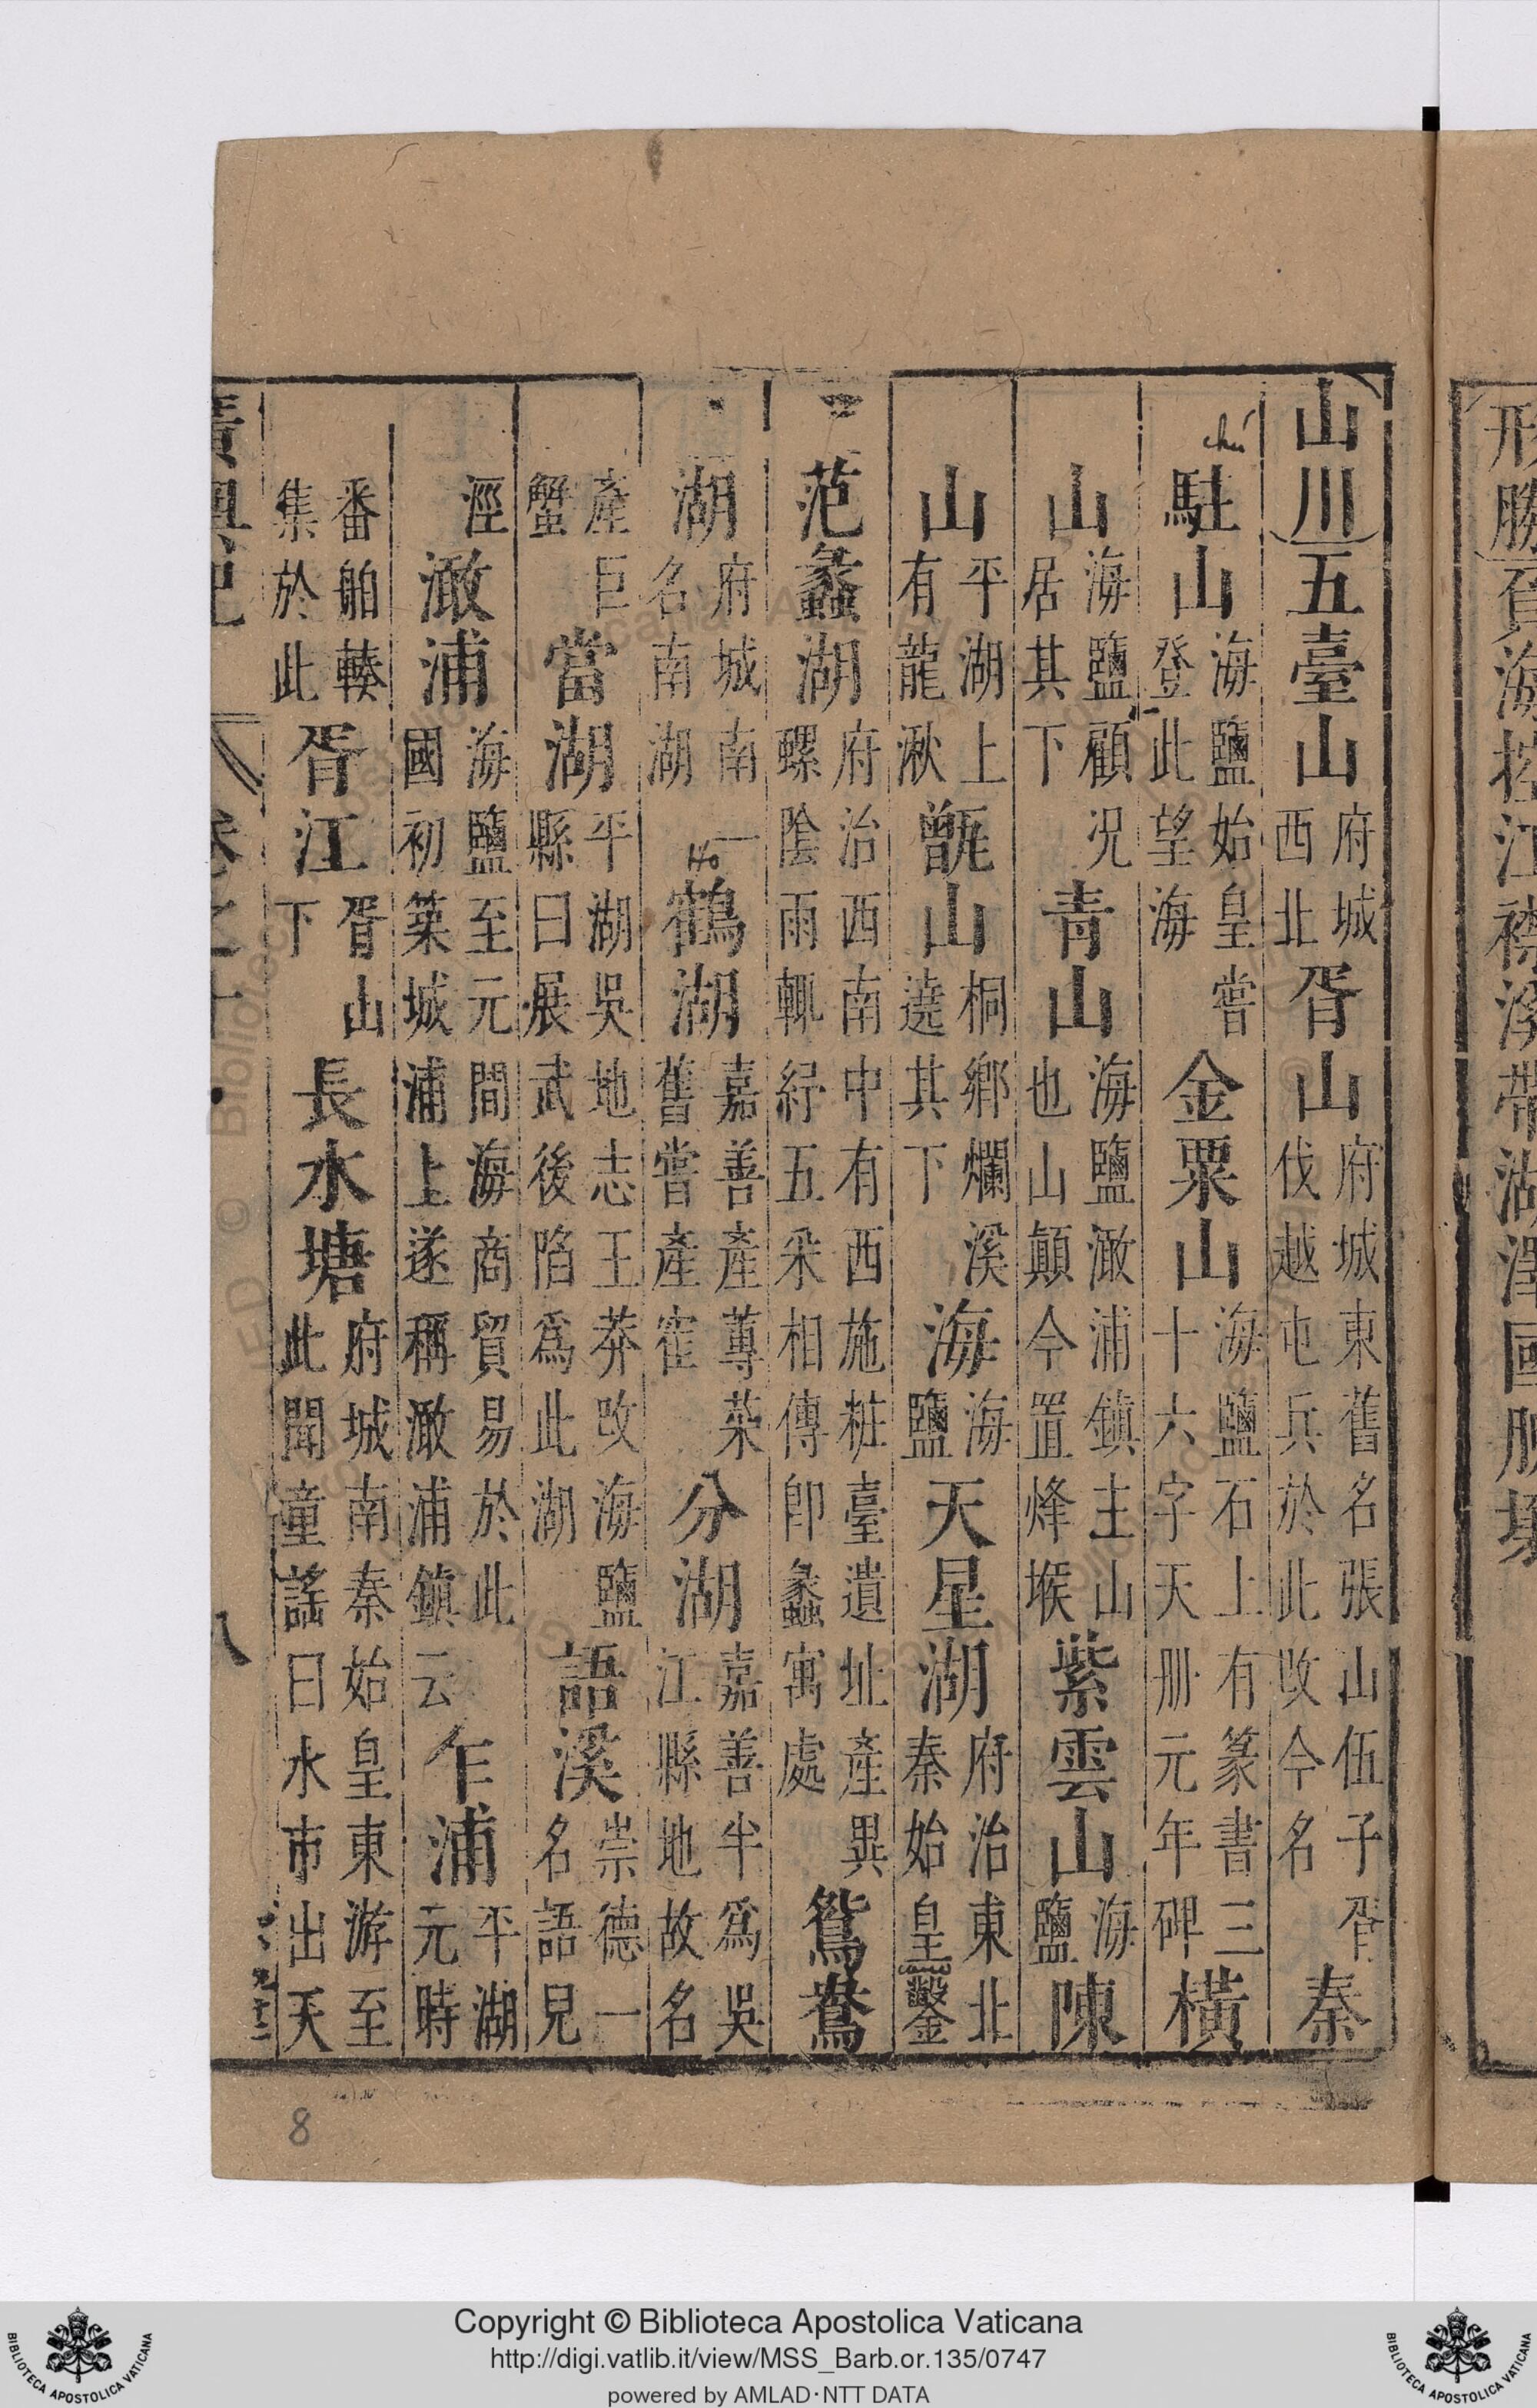 形勝負海控江襟溪帶湖澤國
山川五臺山府城西北胥山府城東舊名張山伍子胥伐越屯兵於此改今名秦
chú
駐山海鹽始皇嘗登此望海金粟山海鹽石上有篆書三十六字天冊元年碑橫
山海鹽顧况居其下青山海鹽澉浦鎮主山也山顛今置烽堠紫雲山海鹽陳
山平湖上有龍湫甑山桐鄉爛溪遶其下海海鹽天星湖府治東北秦始皇鑿
范蠡湖府治西南中有西施粧臺遺址產異螺陰雨輒紆五采相傳卽蠡寓處鴛鴦
湖府城南一名南湖鶴湖嘉善產蓴菜舊嘗產寉分湖嘉善半爲吳江縣地故名
Ho
產巨蟹當湖平湖吳地志王莽改海鹽縣曰展武後陷爲此湖語溪崇德一名語兒
涇澉浦海鹽至元間海商貿易於此國初築城浦上遂稱澉浦鎮云乍浦平湖元時
番舶輳集於此胥江胥山下長水塘府城南秦始皇東游至此聞童謠曰水市出天
廣輿記 卷之十 八
8
Copyright © Biblioteca Apostolica Vaticana
http://digi.vatlib.it/view/MSS_Barb.or.135/0747
powered by AMLAD·NTT DATA
BIBLIOTECA APOSTOLICA VATICANA
BIBLIOTECA APOSTOLICA VATICANA